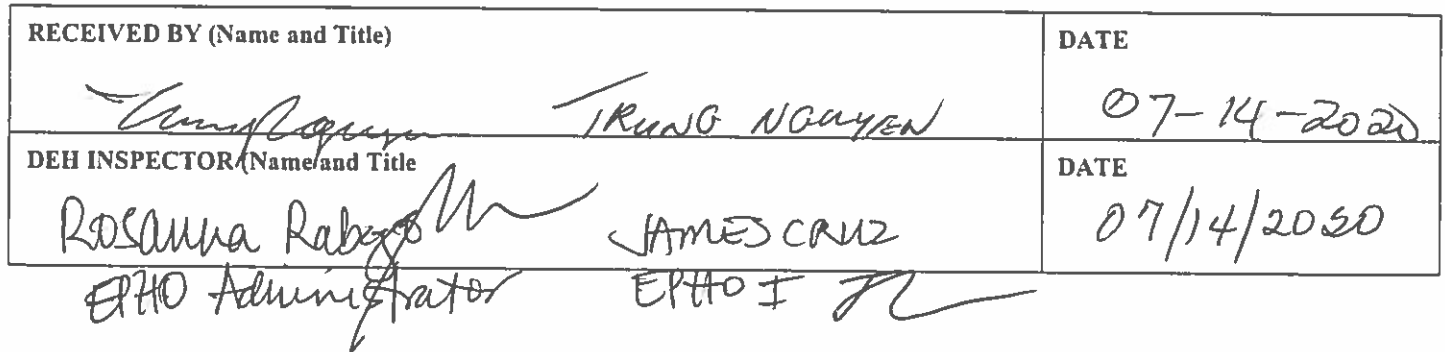 RECEIVED BY (Name and Title)
DATE
TRUNG NGUYEN
07-14-2020
DEH INSPECTOR (Name and Title
DATE
Rosanna Rabago
JAMES CRUZ
07/14/2020
EPHO Administrator
EPHO I